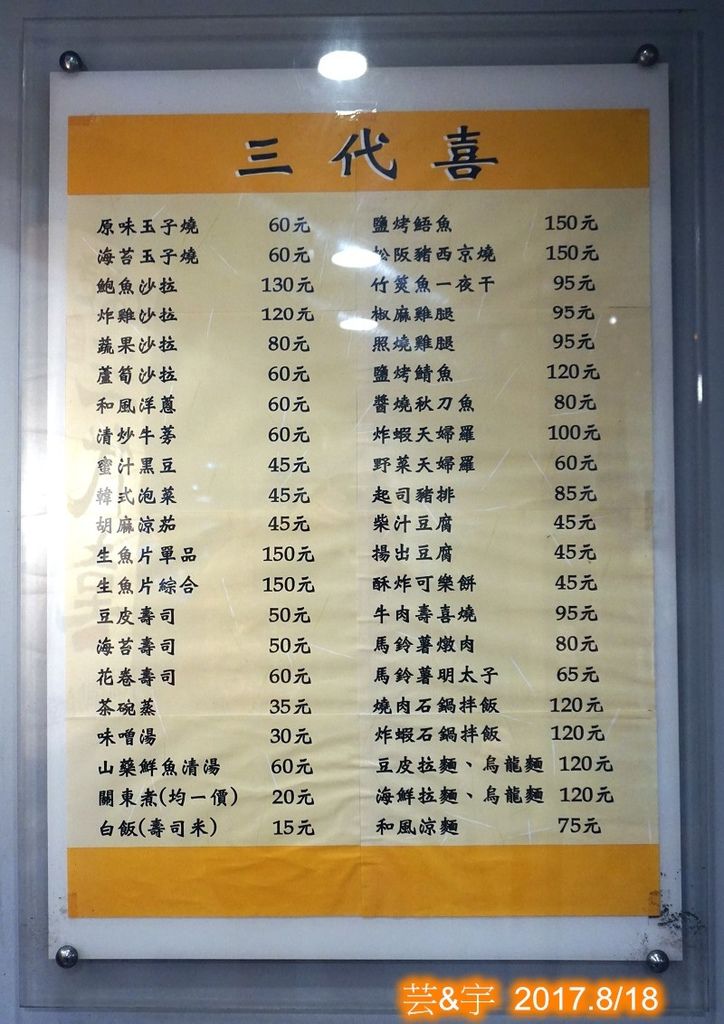 三代喜
原味玉子燒 60元
海苔玉子燒 60元
鮑魚沙拉 130元
炸雞沙拉 120元
蔬果沙拉 80元
蘆筍沙拉 60元
和風洋蔥 60元
清炒牛蒡 60元
蜜汁黑豆 45元
韓式泡菜 45元
胡麻涼茄 45元
生魚片單品 150元
生魚片綜合 150元
豆皮壽司 50元
海苔壽司 50元
花卷壽司 60元
茶碗蒸 35元
味噌湯 30元
山藥鮮魚清湯 60元
關東煮(均一價) 20元
白飯(壽司米) 15元
鹽烤鯃魚 150元
松阪豬西京燒 150元
竹筴魚一夜干 95元
椒麻雞腿 95元
照燒雞腿 95元
鹽烤鯖魚 120元
醬燒秋刀魚 80元
炸蝦天婦羅 100元
野菜天婦羅 60元
起司豬排 85元
柴汁豆腐 45元
揚出豆腐 45元
酥炸可樂餅 45元
牛肉壽喜燒 95元
馬鈴薯燉肉 80元
馬鈴薯明太子 65元
燒肉石鍋拌飯 120元
炸蝦石鍋拌飯 120元
豆皮拉麵、烏龍麵 120元
海鮮拉麵、烏龍麵 120元
和風涼麵 75元
芸&宇 2017.8/18